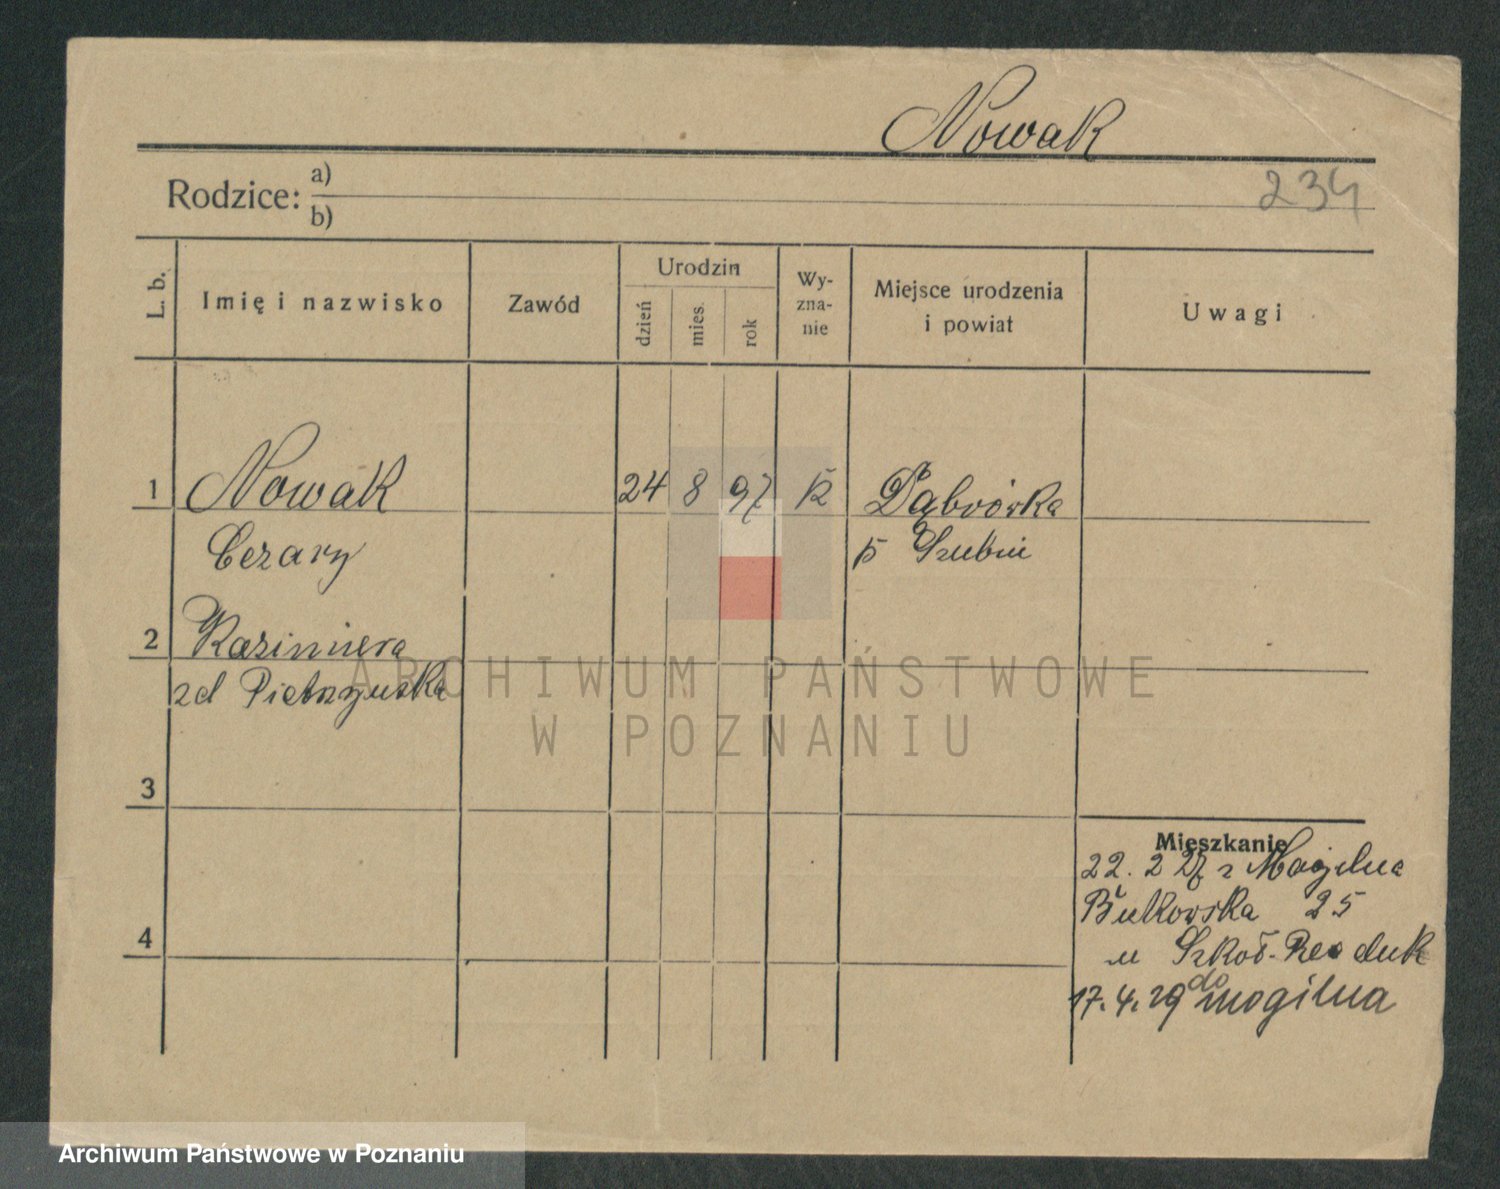 Nowak
Rodzice: a)
b)
234
L. b.
Imię i nazwisko
Zawód
Urodzin
dzień
mies.
rok
Wy-
zna-
nie
Miejsce urodzenia
i powiat
Uwagi
1 Nowak 24 8 97 K Dąbrówka
Cezary p Szubin
2 Kazimiera
zd
3
Mieszkanie
22. 2 27 z Mogilna
Bukowska 25
u Szkoł.
4
17. 4. 29 do mogilna
ARCHIWUM PAŃSTWOWE
W POZNANIU
Archiwum Państwowe w Poznaniu